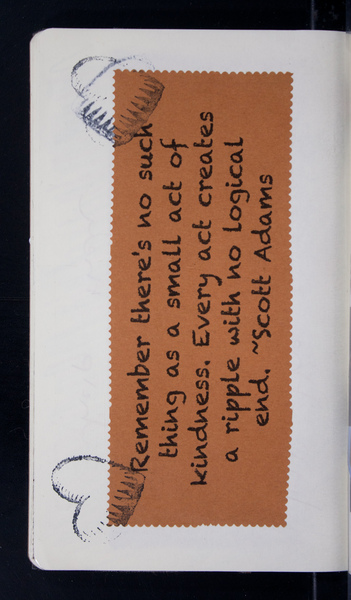 Remember there's no such
thing as a small act of
kindness. Every act creates
a ripple with no logical
end. ~Scott Adams